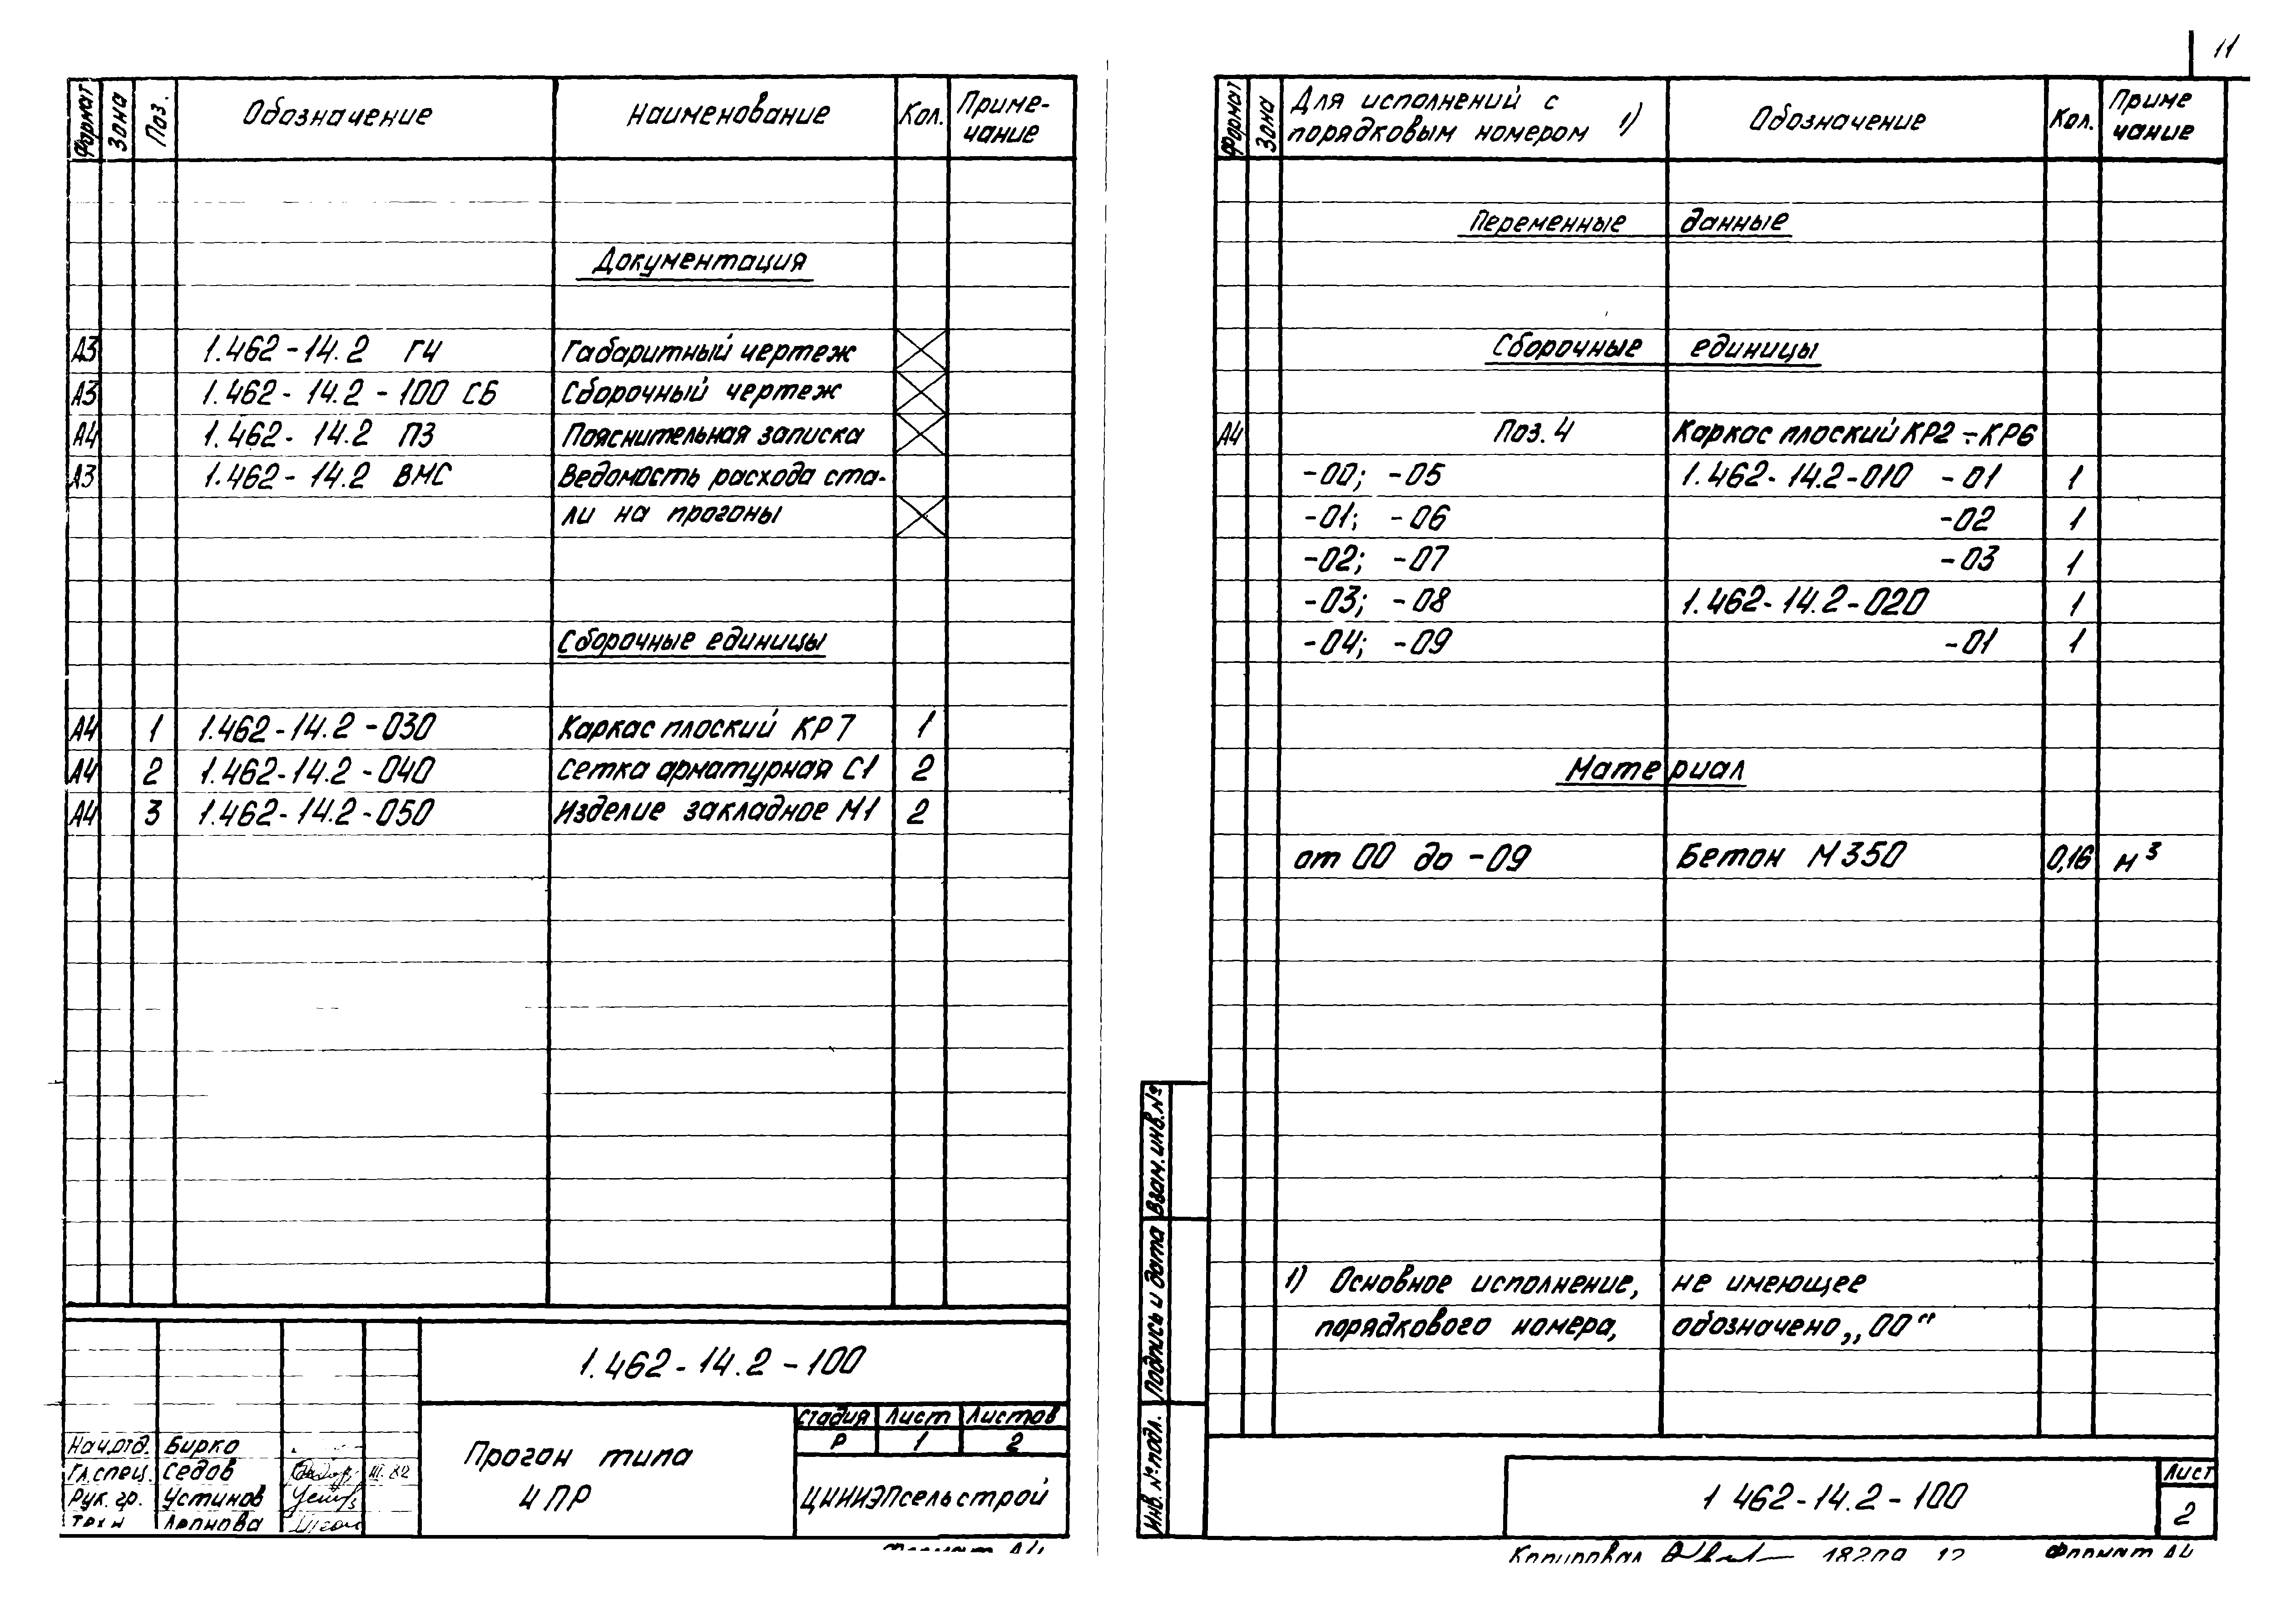 11
Формат Зона Поз. Обозначение Наименование Кол. Приме-
чание
Документация
А3 1.462-14.2 ГЧ Габаритный чертеж
А3 1.462-14.2-100 СБ Сборочный чертеж
А4 1.462-14.2 ПЗ Пояснительная записка
А3 1.462-14.2 ВМС Ведомость расхода ста-
ли на прогоны
Сборочные единицы
А4 1 1.462-14.2-030 Каркас плоский КР7 1
А4 2 1.462-14.2-040 Сетка арматурная С1 2
А4 3 1.462-14.2-050 Изделие закладное М1 2
1.462-14.2-100
Стадия Лист Листов
Р 1 2
Прогон типа
4ПР
ЦНИИЭПсельстрой
Нач.отд. Бирко
Гл.спец. Седов III.82
Рук. гр. Устинов
Формат А4
Формат Зона Для исполнений с
порядковым номером 1) Обозначение Кол. Приме
чание
Переменные данные
Сборочные единицы
А4 Поз. 4 Каркас плоский КР2÷КР6
-00; -05 1.462-14.2-010 -01 1
-01; -06 -02 1
-02; -07 -03 1
-03; -08 1.462-14.2-020 1
-04; -09 -01 1
Материал
от 00 до -09 Бетон М350 0,16 м³
1) Основное исполнение, не имеющее
порядкового номера, обозначено „00“
Взам.инв.№
Подпись и дата
Инв. № подл.
1 462-14.2-100
Лист
2
Копировал 18209 12 Формат А4